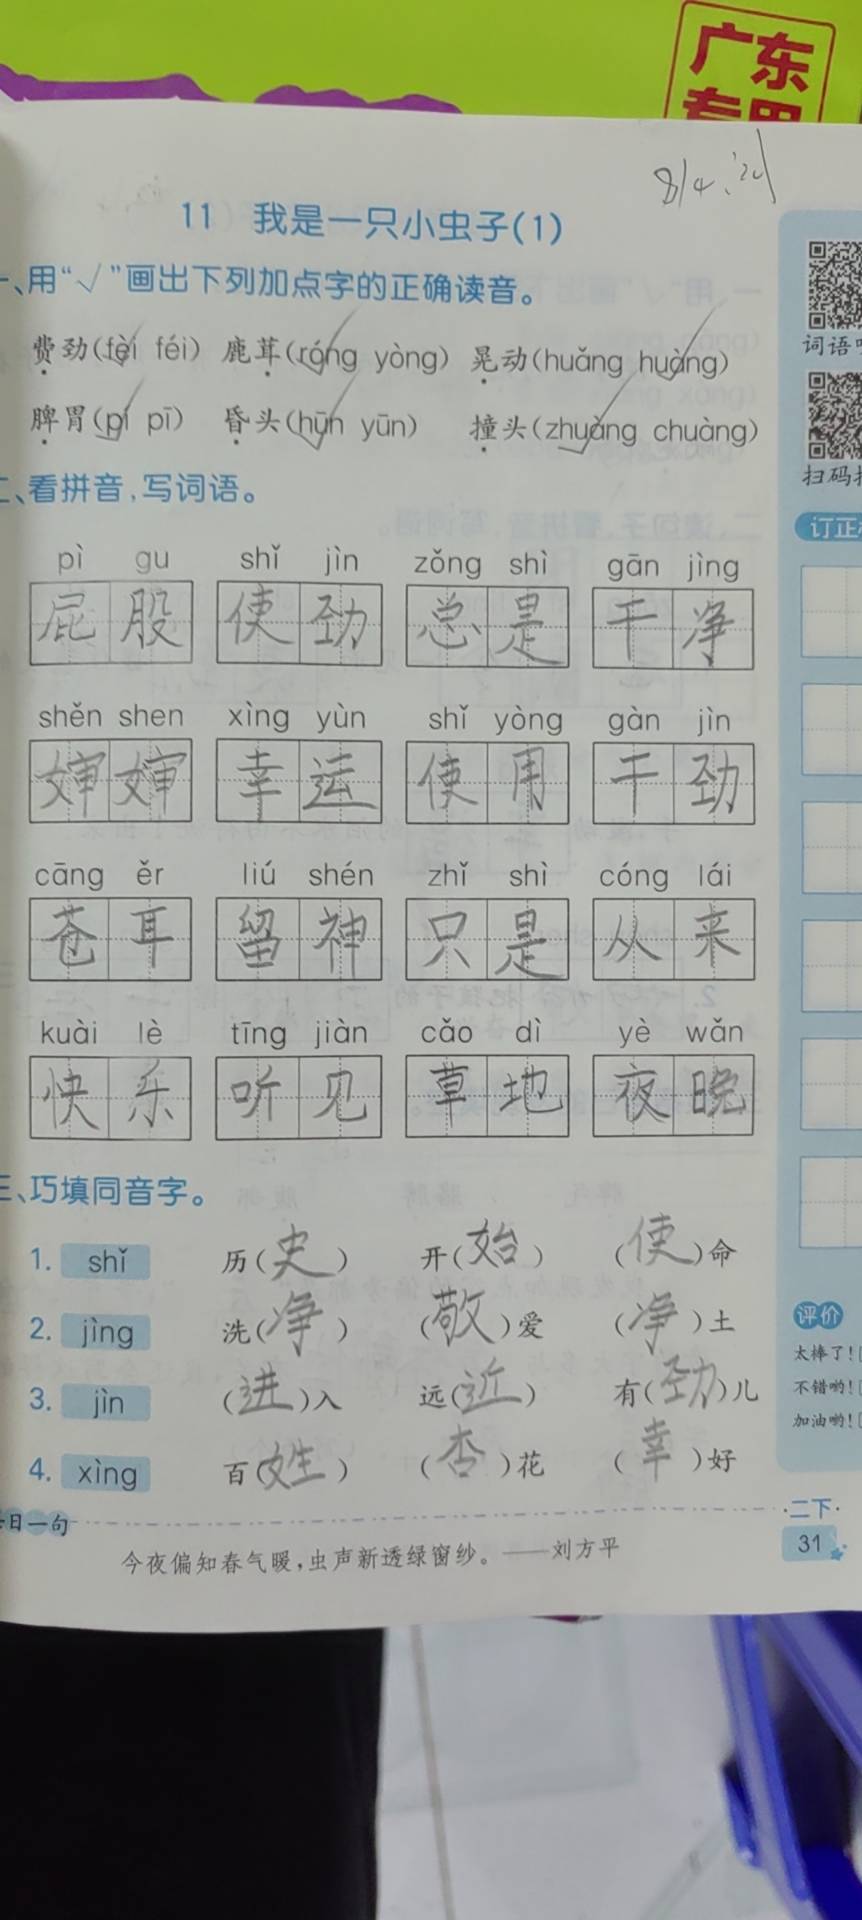 广东
专用
8/4.'24
11 我是一只小虫子(1)
一、用“√”画出下列加点字的正确读音。
费劲(fèi féi) 鹿茸(róng yòng) 晃动(huǎng huàng)
脾胃(pí pī) 昏头(hūn yūn) 撞头(zhuàng chuàng)
二、看拼音,写词语。
pì gu shǐ jìn zǒng shì gān jìng
屁股 使劲 总是 干净
shěn shen xìng yùn shǐ yòng gàn jìn
婶婶 幸运 使用 干劲
cāng ěr liú shén zhǐ shì cóng lái
苍耳 留神 只是 从来
kuài lè tīng jiàn cǎo dì yè wǎn
快乐 听见 草地 夜晚
三、巧填同音字。
1. shǐ 历(史) 开(始) (使)命
2. jìng 洗(净) (敬)爱 (净)土
3. jìn (进)入 远(近) 有(劲)儿
4. xìng 百(姓) (杏)花 (幸)好
每日一句
今夜偏知春气暖,虫声新透绿窗纱。——刘方平
词语
扫码
订正
评价
太棒了!
不错哟!
加油哟!
·二下·
31